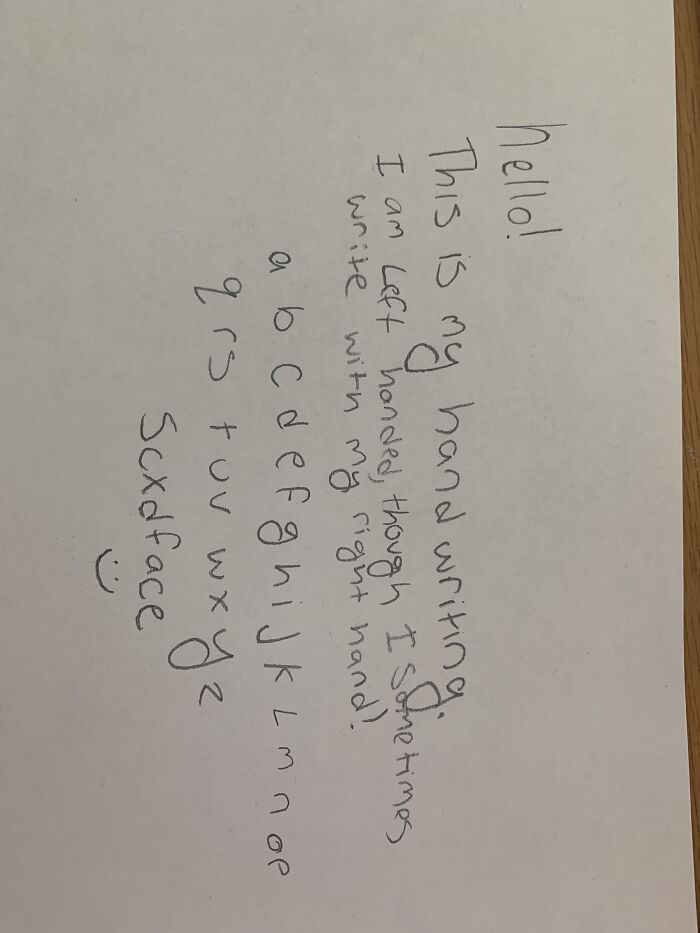 hello!
This is my hand writing.
I am Left handed, though I sometimes
write with my right hand!
a b c d e f g h i j k L m n o p
q r s t u v w x y z
Scxdface
:)